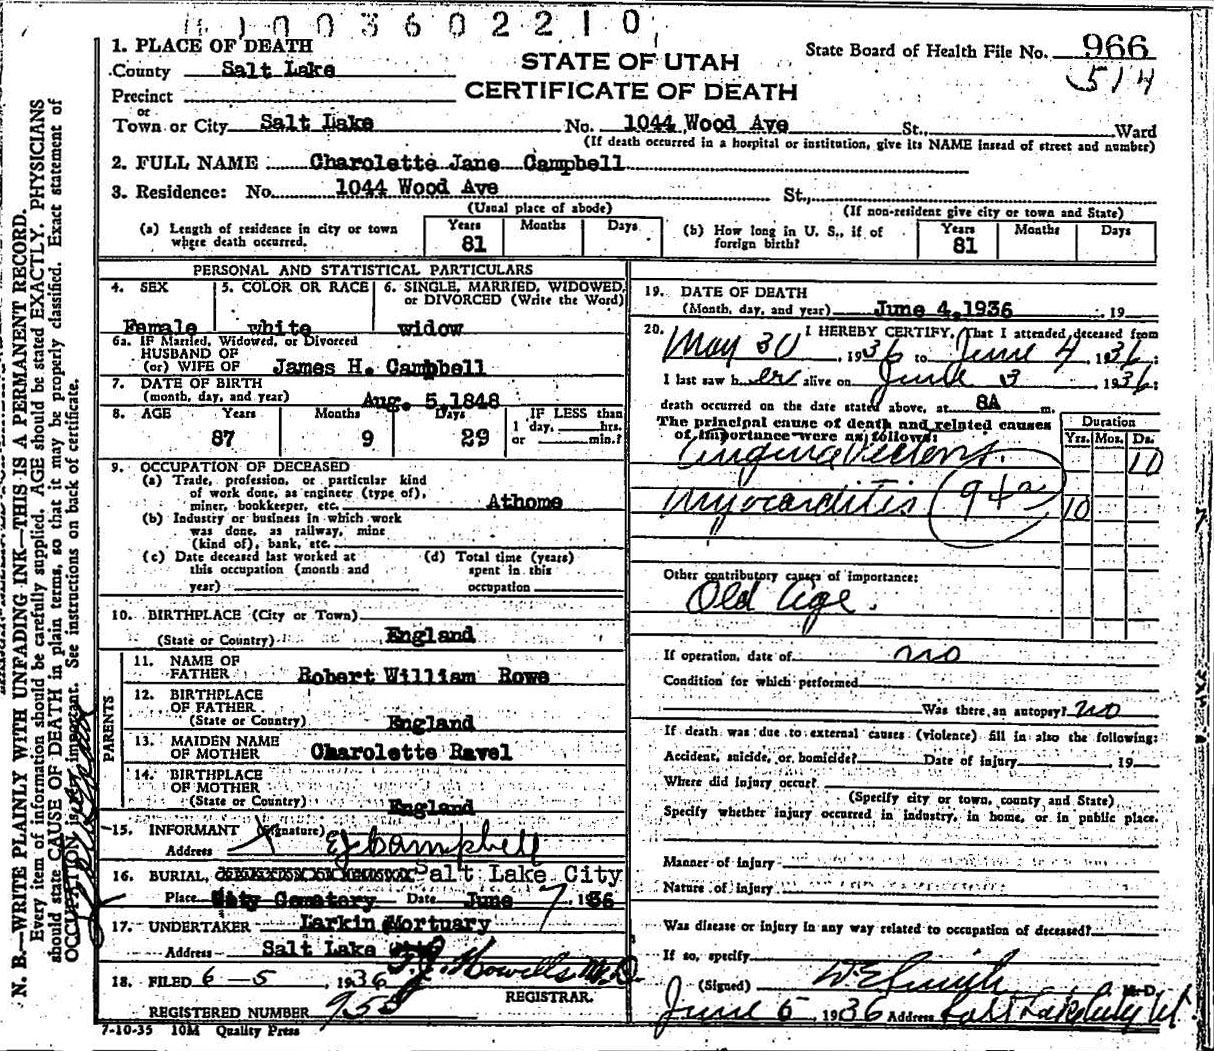 1003602210
1. PLACE OF DEATH
STATE OF UTAH
CERTIFICATE OF DEATH
State Board of Health File No. 966
514
County Salt Lake
Precinct
or
Town or City Salt Lake No. 1044 Wood Ave St., Ward
(If death occurred in a hospital or institution, give its NAME instead of street and number)
2. FULL NAME Charolette Jane Campbell
3. Residence: No. 1044 Wood Ave St.,
(Usual place of abode) (If non-resident give city or town and State)
(a) Length of residence in city or town where death occurred. Years 81 Months Days
(b) How long in U. S., if of foreign birth? Years 81 Months Days
PERSONAL AND STATISTICAL PARTICULARS
4. SEX Female
5. COLOR OR RACE white
6. SINGLE, MARRIED, WIDOWED, or DIVORCED (Write the Word) widow
6a. IF Married, Widowed, or Divorced
HUSBAND OF
(or) WIFE OF James H. Campbell
7. DATE OF BIRTH
(month, day, and year) Aug. 5,1848
8. AGE Years 87 Months 9 Days 29 IF LESS than 1 day, hrs. or min.?
9. OCCUPATION OF DECEASED
(a) Trade, profession, or particular kind
of work done, as engineer (type of),
miner, bookkeeper, etc. Athome
(b) Industry or business in which work
was done, as railway, mine
(kind of), bank, etc.
(c) Date deceased last worked at this occupation (month and year)
(d) Total time (years) spent in this occupation
10. BIRTHPLACE (City or Town)
(State or Country) England
PARENTS
11. NAME OF FATHER Robert William Rowe
12. BIRTHPLACE OF FATHER
(State or Country) England
13. MAIDEN NAME OF MOTHER Charolette Ravel
14. BIRTHPLACE OF MOTHER
(State or Country) England
15. INFORMANT (Signature) X EJ Campbell
Address
16. BURIAL, Salt Lake City
Place City Cemetery Date June 7, 1936
17. UNDERTAKER Larkin Mortuary
Address Salt Lake City
18. FILED 6-5, 1936 T.J. Howells M.D.
REGISTRAR.
REGISTERED NUMBER 953
7-10-35 10M Quality Press
19. DATE OF DEATH
(Month, day, and year) June 4,1936 19
20. I HEREBY CERTIFY, That I attended deceased from
May 30, 1936 to June 4 1936;
I last saw her alive on June 3 1936;
death occurred on the date stated above, at 8A m.
The principal cause of death and related causes
of importance were as follows:
Duration
Yrs. Mos. Ds.
Angina Pectoris. 10
Myocarditis 94a 10
Other contributory causes of importance:
Old Age.
If operation, date of no
Condition for which performed
Was there an autopsy? no
If death was due to external causes (violence) fill in also the following:
Accident, suicide, or homicide? Date of injury 19
Where did injury occur?
(Specify city or town, county and State)
Specify whether injury occurred in industry, in home, or in public place.
Manner of injury
Nature of injury
Was disease or injury in any way related to occupation of deceased?
If so, specify
(Signed) W E Smith M.D.
June 5, 1936 Address Salt Lake City Ut
N. B.—WRITE PLAINLY WITH UNFADING INK—THIS IS A PERMANENT RECORD.
Every item of information should be carefully supplied. AGE should be stated EXACTLY. PHYSICIANS
should state CAUSE OF DEATH in plain terms, so that it may be properly classified. Exact statement of
OCCUPATION is very important. See instructions on back of certificate.